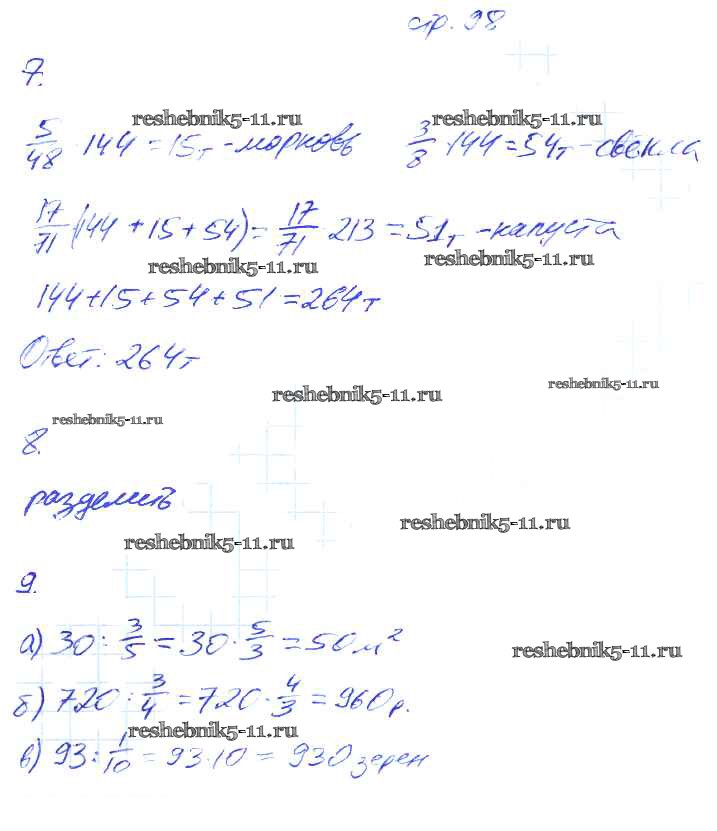 стр. 98
7.
reshebnik5-11.ru reshebnik5-11.ru
5/48 · 144 = 15т - морковь 3/8 · 144 = 54т - свёкла
17/71 (144 + 15 + 54) = 17/71 · 213 = 51т - капуста
reshebnik5-11.ru reshebnik5-11.ru
144 + 15 + 54 + 51 = 264т
Ответ: 264т
reshebnik5-11.ru reshebnik5-11.ru
reshebnik5-11.ru
8.
разделить
reshebnik5-11.ru
reshebnik5-11.ru
9.
а) 30 : 3/5 = 30 · 5/3 = 50 м²
reshebnik5-11.ru
б) 720 : 3/4 = 720 · 4/3 = 960р.
reshebnik5-11.ru
в) 93 : 1/10 = 93 · 10 = 930 зерен